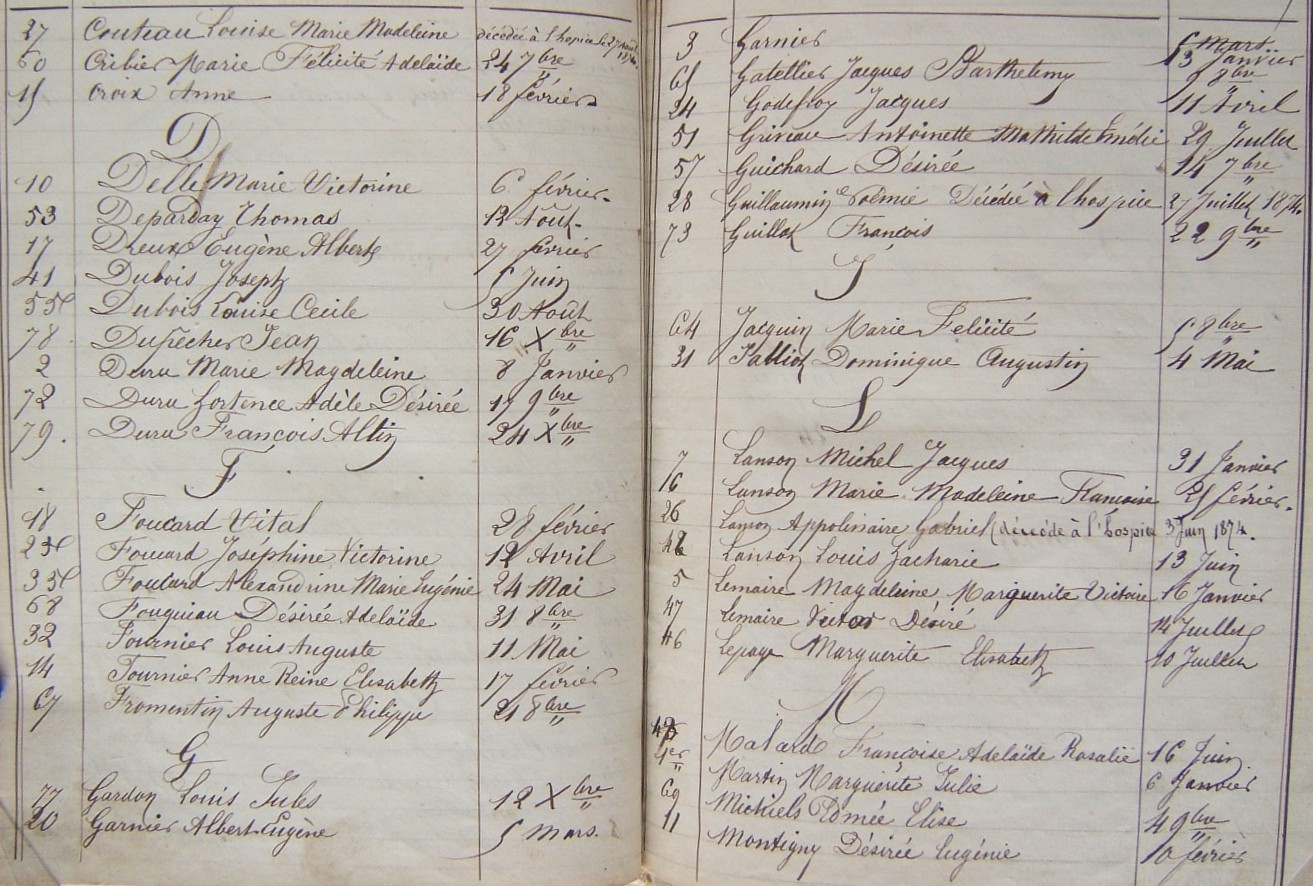 27 Couteau Louise Marie Madeleine décédée à l'hospice le 27 Août 1874.
60 Cribier Marie Félicité Adelaïde 24 7bre
15 Croix Anne 18 février
D
10 Delle Marie Victorine 6 février
53 Deparday Thomas 12 Août
17 Dreux Eugène Albert 27 février
41 Dubois Joseph 5 Juin
55 Dubois Louise Cecile 30 Août
78 Dupêcher Jean 16 Xbre
2 Duru Marie Magdeleine 8 Janvier
72 Duru hortence Adèle Désirée 17 9bre
79. Duru François Altin 24 Xbre
F
18 Foucard Vital 28 février
25 Foucard Joséphine Victorine 12 Avril
35 Foucard Alexandrine Marie Eugénie 24 Mai
68 Fouquiau Désirée Adelaïde 31 8bre
32 Fournier Louis Auguste 11 Mai
14 Fournier Anne Reine Elisabeth 17 février
67 Fromentin Auguste Philippe 21 8bre
G
77 Gardon Louis Jules 12 Xbre
20 Garnier Albert Eugène 5 Mars.
3 Garnier 13 Janvier
65 Gatellier Jacques Barthelemy 9 8bre
24 Godefroy Jacques 11 Avril
51 Griveau Antoinette Mathilde Emélie 29 Juillet
57 Guichard Désirée 14 7bre
28 Guillaumin Noëmie Décédée à l'hospice 27 Juillet 1874
73 Guillot François 22 9bre
J
64 Jacquin Marie Felicité 5 8bre
31 Jalliot Dominique Augustin 4 Mai
L
7 Lanson Michel Jacques 31 Janvier
16 Lanson Marie Madeleine Francoise 25 février.
26 Lanson Appolinaire Gabriel (décédé à l'hospice 3 Juin 1874.
42 Lanson Louis Zacharie 13 Juin
5 Lemaire Magdeleine Marguerite Victoire 16 Janvier
47 Lemaire Victor Désiré 14 Juillet
46 Lepage Marguerite Elisabeth 10 Juillet
M
43 Malard Françoise Adelaïde Rosalie 16 Juin
1er Martin Marguerite Julie 6 Janvier
69 Michiels Edmée Elise 4 9bre
11 Montigny Désirée Eugénie 10 février